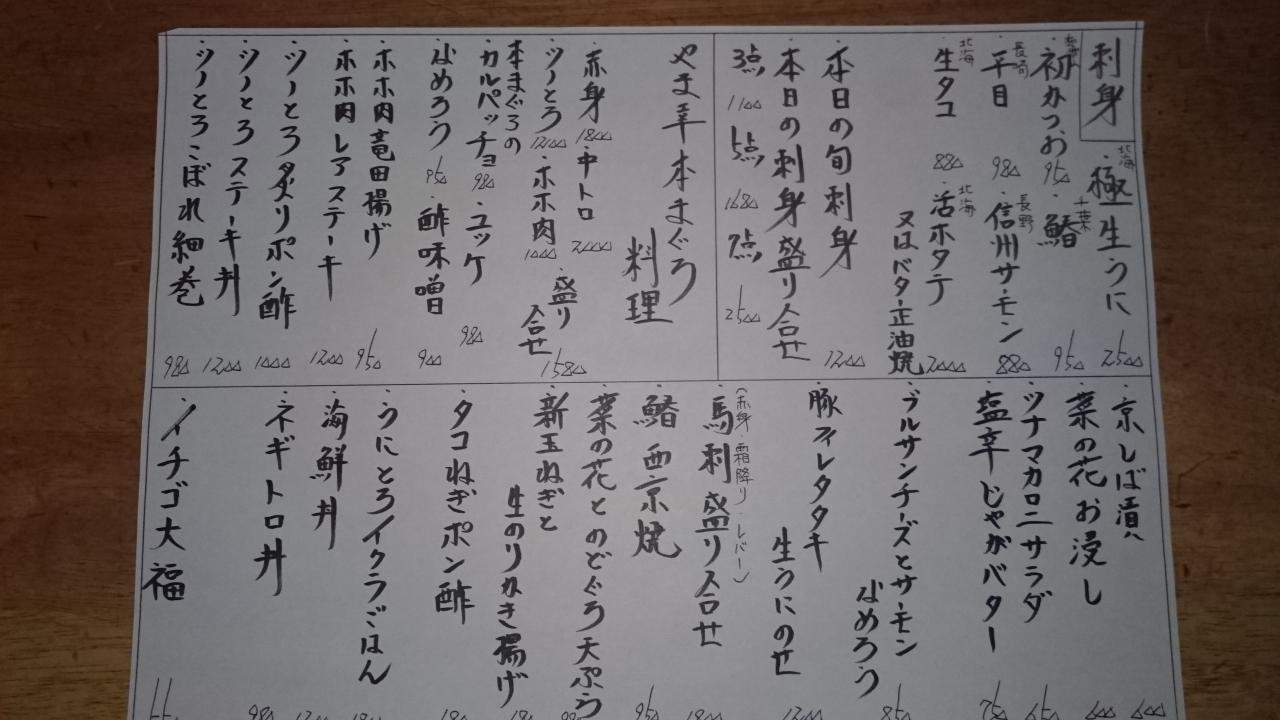 刺身
北海 極生うに 2500
初かつお 950
千葉 鰆 950
長崎 平目 980
長野 信州サーモン 880
北海 生タコ 880
北海 活ホタテ
又はバター正油焼 2000
本日の旬刺身 1200
本日の刺身盛り合せ
3点 1100 5点 1680 7点 2500
やま幸本まぐろ
料理
赤身 1800 中トロ 2000
ツノとろ 1200 ホホ肉 1000 盛り合せ 1580
本まぐろの
カルパッチョ 980 ユッケ 980
なめろう 950 酢味噌 900
ホホ肉竜田揚げ 950
ホホ肉レアステーキ 1200
ツノとろ炙りポン酢 1000
ツノとろステーキ丼 1200
ツノとろこぼれ細巻 980
京しば漬け 600
菜の花お浸し 600
ツナマカロニサラダ 650
塩辛じゃがバター 750
ブルサンチーズとサーモン
なめろう 850
豚フィレタタキ
生うにのせ 1200
(赤身・霜降り・レバー)
馬刺盛り合せ 1800
鰆西京焼 950
菜の花とのどぐろ天ぷら
新玉ねぎと
生のりかき揚げ
タコねぎポン酢
うにとろイクラごはん
海鮮丼
ネギトロ丼 980
イチゴ大福